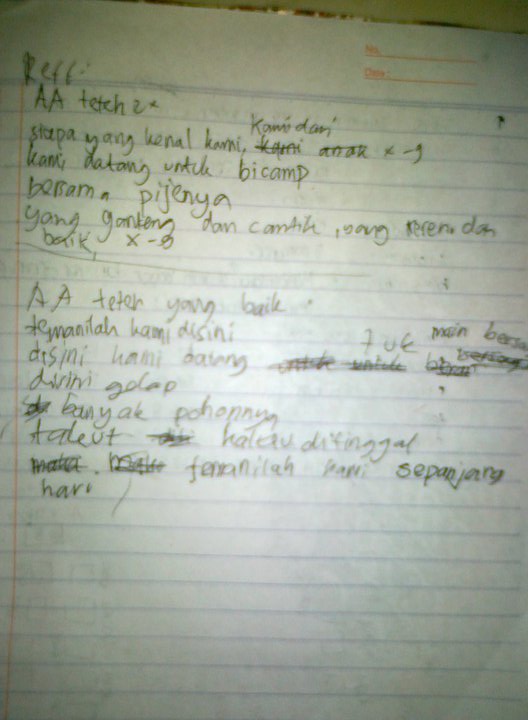 No.
Date:
Reff:
AA teteh 2x
siapa yang kenal kami, kami dari x-9
kami datang untuk bicamp
bersama pijenya
yang ganteng dan cantik, yang keren dan
baik, x-9
AA teteh yang baik
temanilah kami disini
disini kami datang main
disini gelap
banyak pohonnya
takut kalau ditinggal
temanilah kami sepanjang
hari